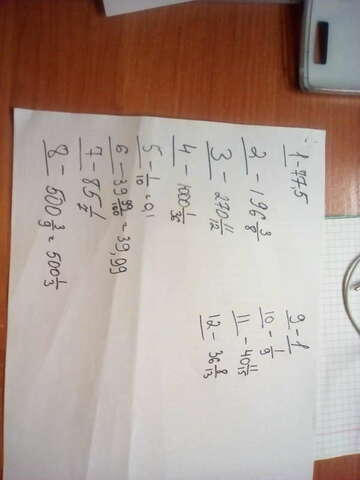 1 - 77,5
2 - 196 3/8
3 - 270 11/12
4 - 1000 1/36
5 - 1/10 = 0,1
6 - 39 99/100 = 39,99
7 - 85 1/2
8 - 500 3/9 = 500 1/3
9 - 1
10 - 1/9
11 - 40 11/15
12 - 36 8/13